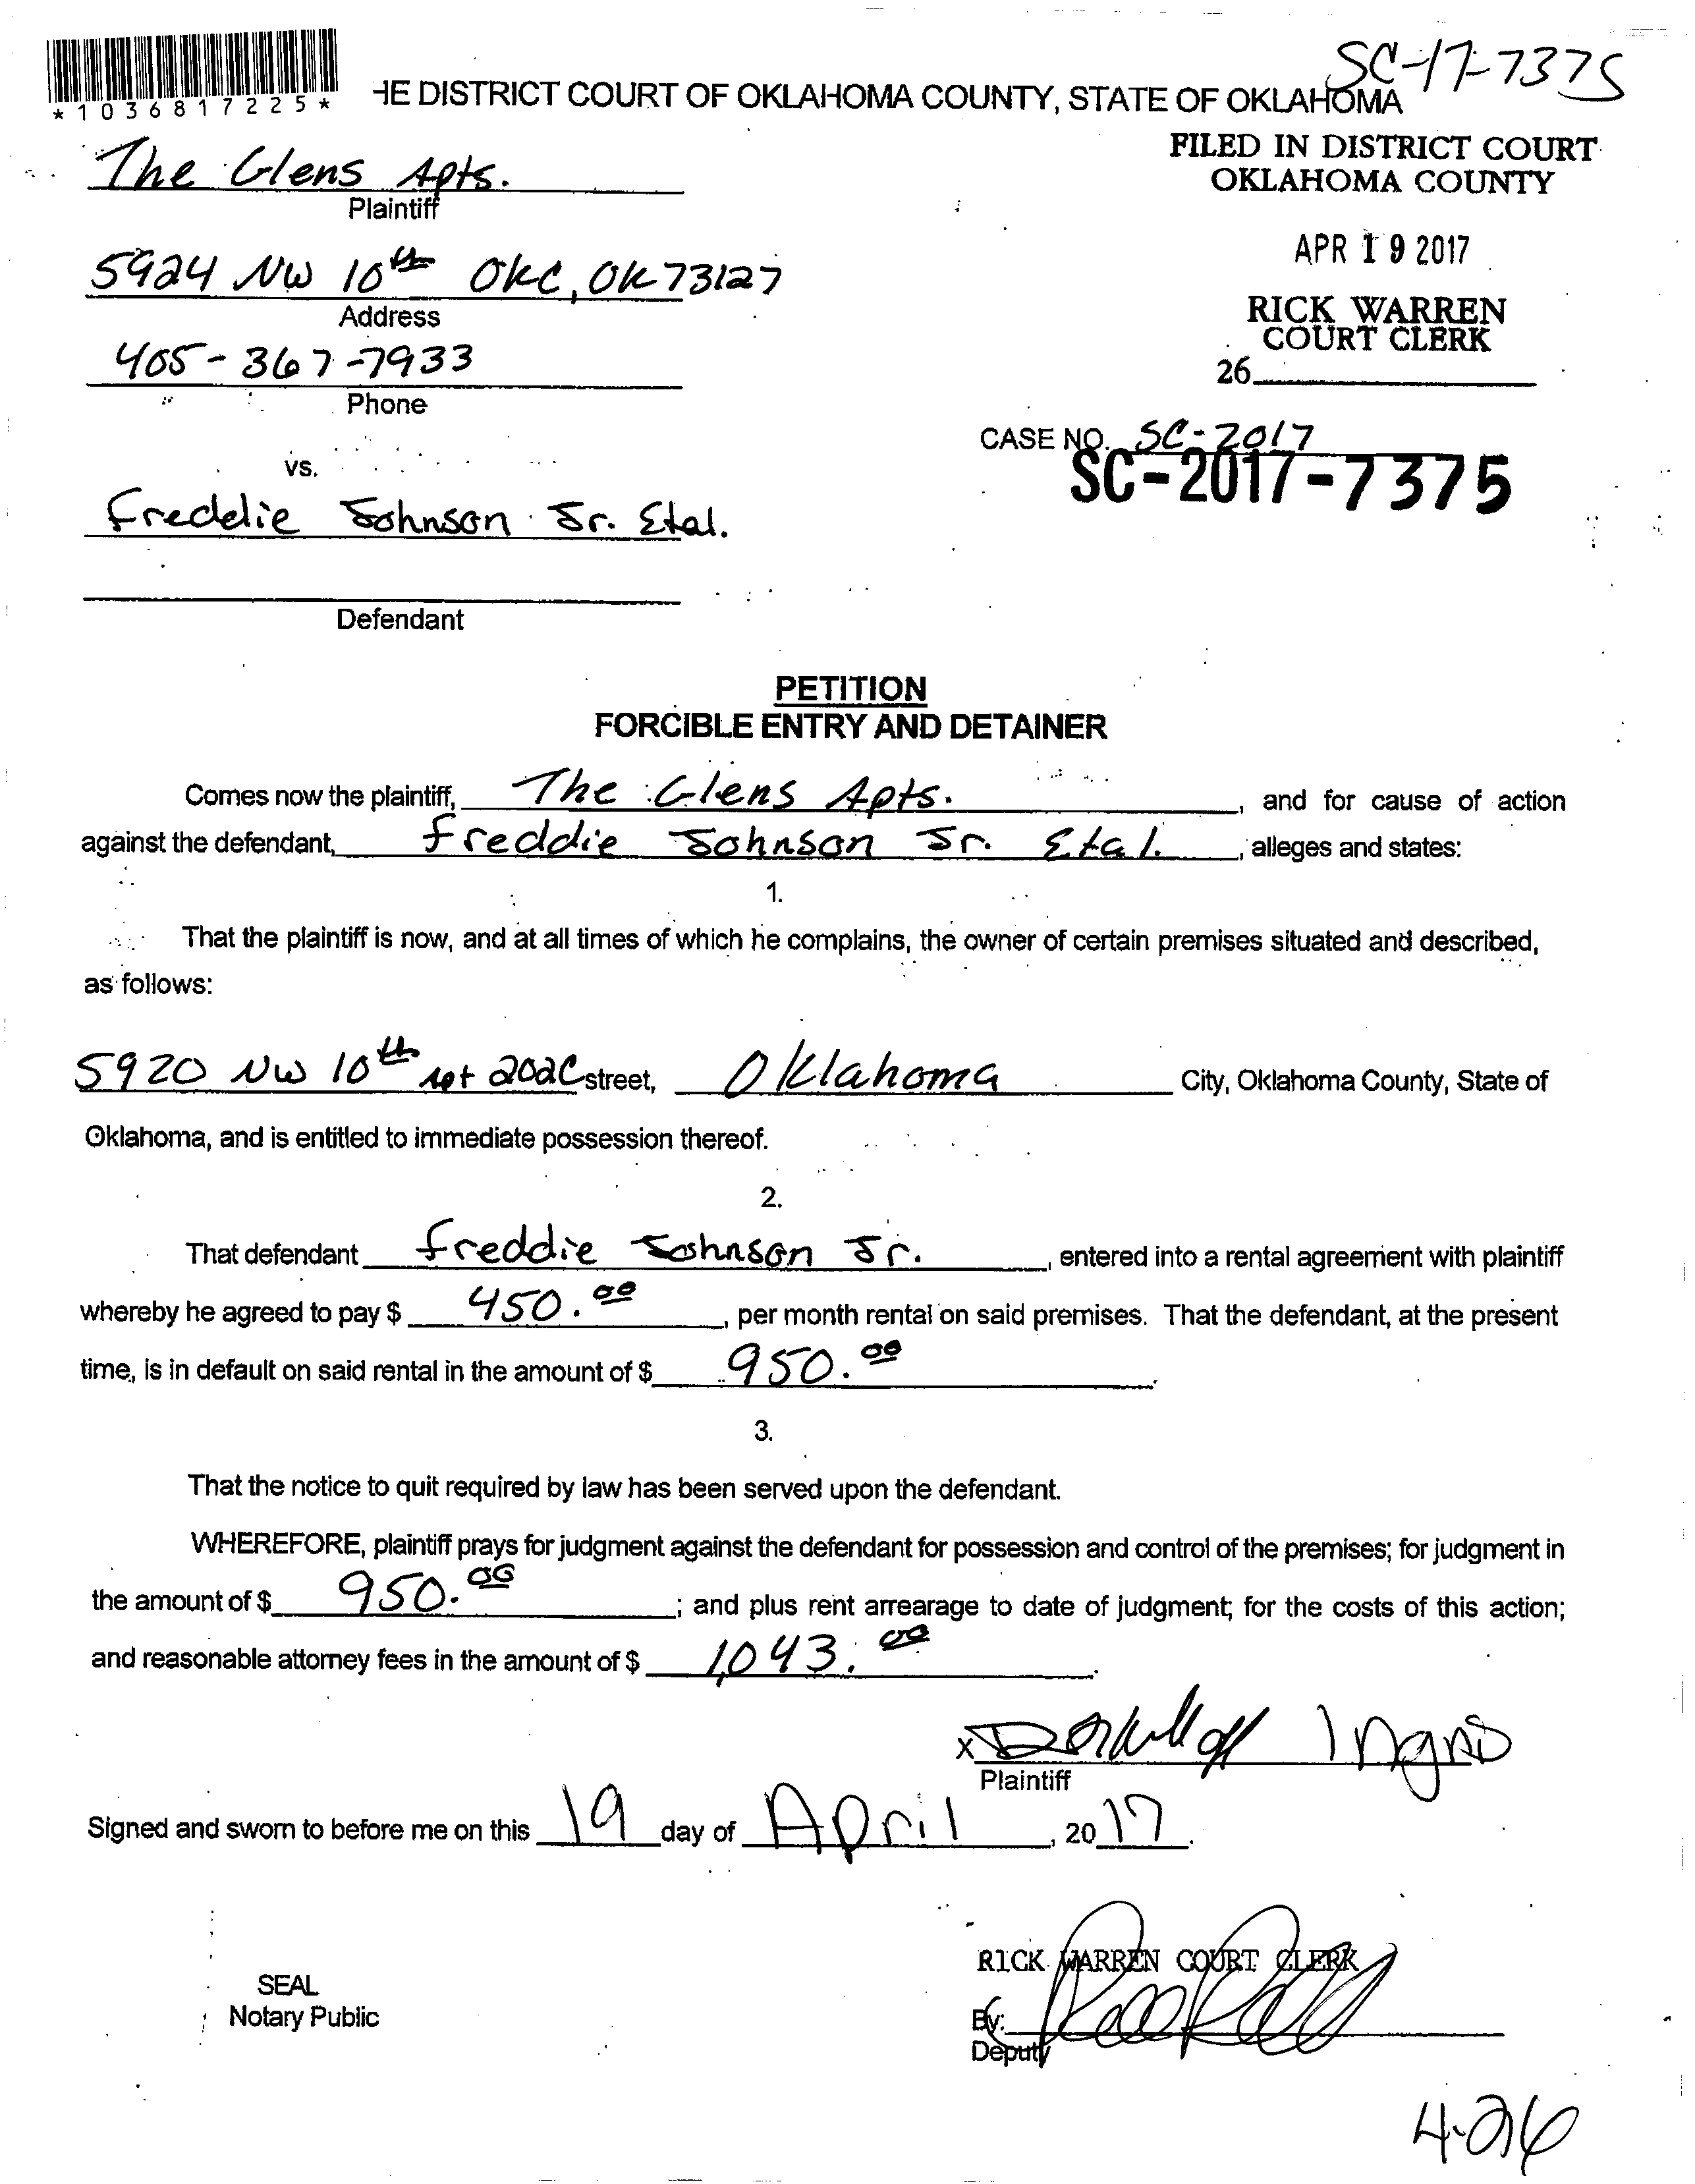 SC-17-7375
*1036817225*
HE DISTRICT COURT OF OKLAHOMA COUNTY, STATE OF OKLAHOMA
FILED IN DISTRICT COURT
OKLAHOMA COUNTY
The Glens Apts.
Plaintiff
APR 19 2017
5924 NW 10th OKC, OK 73127
Address
RICK WARREN
COURT CLERK
405-367-7933
26
Phone
CASE NO. SC-2017
SC-2017-7375
vs.
Freddie Johnson Jr. Etal.
Defendant
PETITION
FORCIBLE ENTRY AND DETAINER
Comes now the plaintiff, The Glens Apts., and for cause of action
against the defendant, Freddie Johnson Jr. Etal., alleges and states:
1.
That the plaintiff is now, and at all times of which he complains, the owner of certain premises situated and described,
as follows:
5920 NW 10th Apt 202C street, Oklahoma City, Oklahoma County, State of
Oklahoma, and is entitled to immediate possession thereof.
2.
That defendant Freddie Johnson Jr., entered into a rental agreement with plaintiff
whereby he agreed to pay $ 450.00, per month rental on said premises. That the defendant, at the present
time, is in default on said rental in the amount of $ 950.00.
3.
That the notice to quit required by law has been served upon the defendant.
WHEREFORE, plaintiff prays for judgment against the defendant for possession and control of the premises; for judgment in
the amount of $ 950.00; and plus rent arrearage to date of judgment; for the costs of this action;
and reasonable attorney fees in the amount of $ 1,043.00.
X
Plaintiff
Signed and sworn to before me on this 19 day of April, 2017.
RICK WARREN COURT CLERK
SEAL
Notary Public
By:
Deputy
4-26